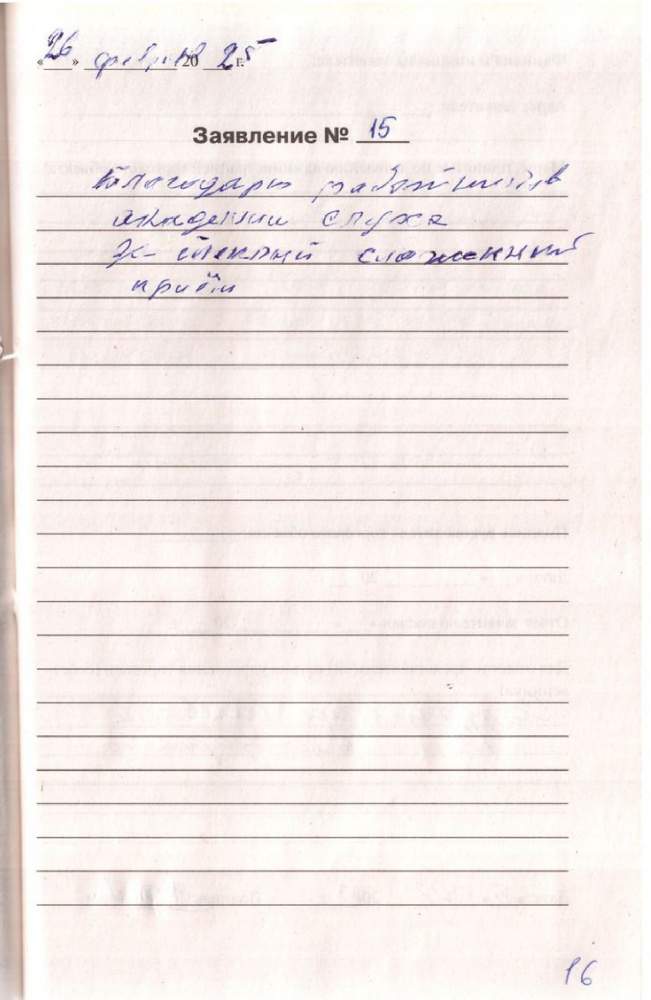 «26» февраля 2025 г.
Заявление № 15
Благодарю работников
академии слуха
за теплый слаженный
приём
16